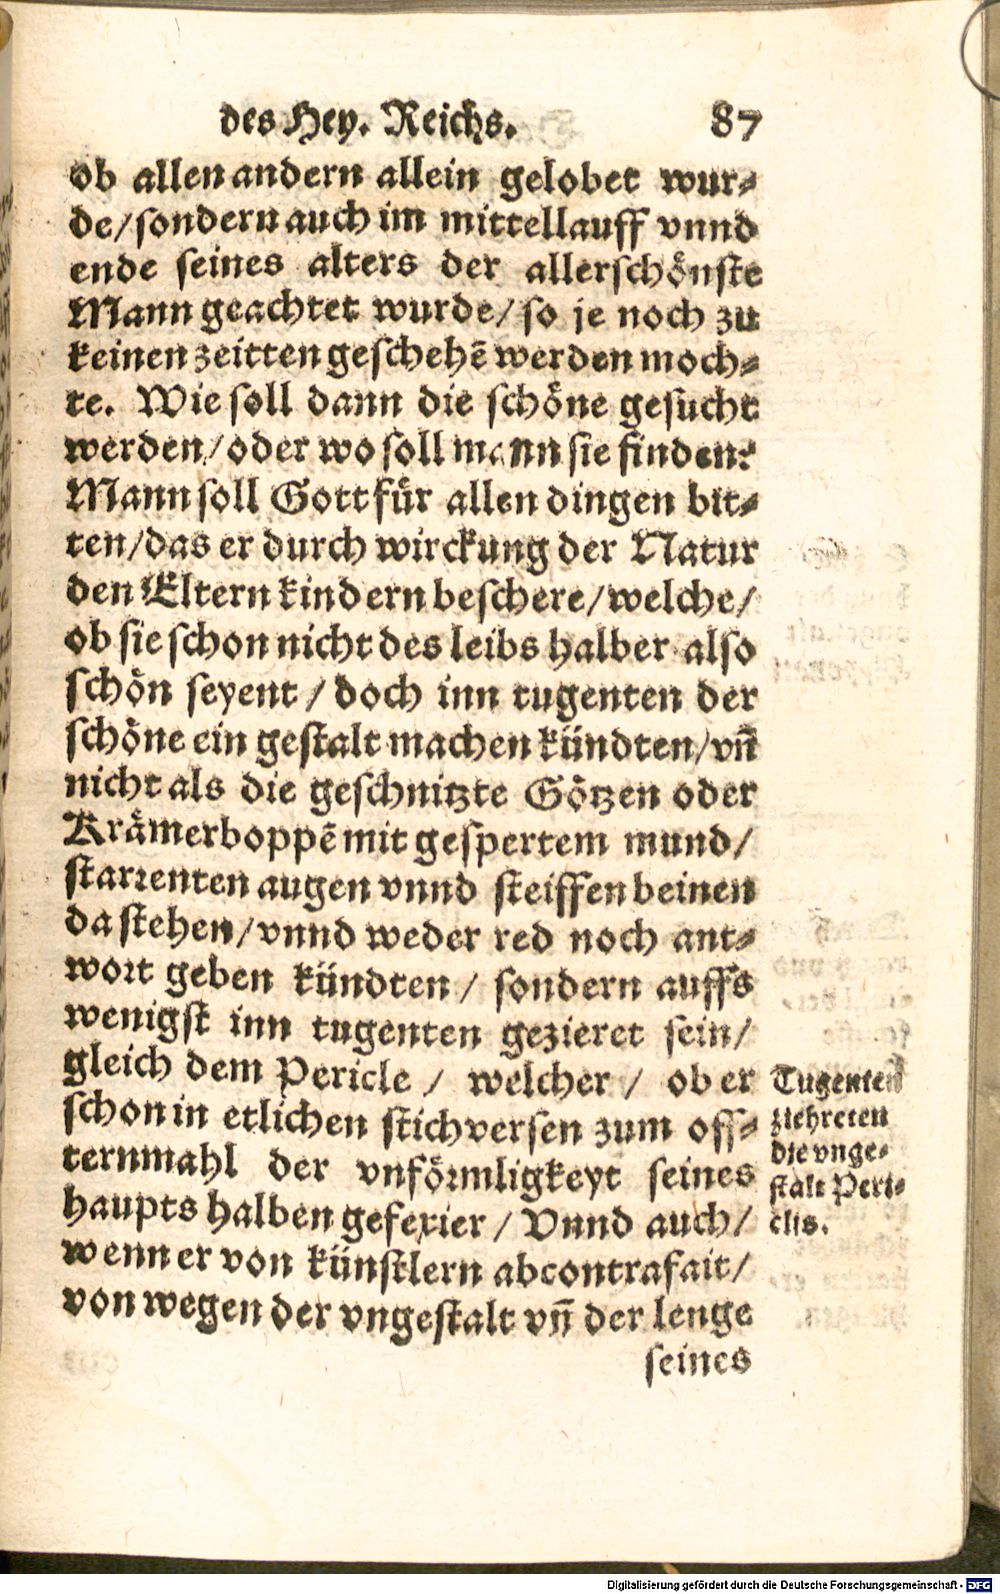 des Hey. Reichs. 87
ob allen andern allein gelobet wur⸗
de/sondern auch im mittellauff vnnd
ende seines alters der allerschönste
Mann geachtet wurde/so je noch zu
keinen zeitten geschehē werden moch⸗
te. Wie soll dann die schöne gesucht
werden/oder wo soll mann sie finden?
Mann soll Gott für allen dingen bit⸗
ten/das er durch wirckung der Natur
den Eltern kindern beschere/welche/
ob sie schon nicht des leibs halber also
schön seyent / doch inn tugenten der
schöne ein gestalt machen kündten/vñ
nicht als die geschnitzte Götzen oder
Krämerboppē mit gespertem mund/
starrenten augen vnnd steiffen beinen
da stehen/vnnd weder red noch ant⸗
wort geben kündten / sondern auffs
wenigst inn tugenten gezieret sein/
gleich dem Pericle / welcher / ob er
schon in etlichen stichversen zum off⸗
ternmahl der vnförmligkeyt seines
haupts halben gefexier / Vnnd auch/
wenn er von künstlern abcontrafait/
von wegen der vngestalt vñ der lenge
seines
Tugenten
ziehreten
die vnge⸗
stalt Peri⸗
clis.
Digitalisierung gefördert durch die Deutsche Forschungsgemeinschaft - DFG